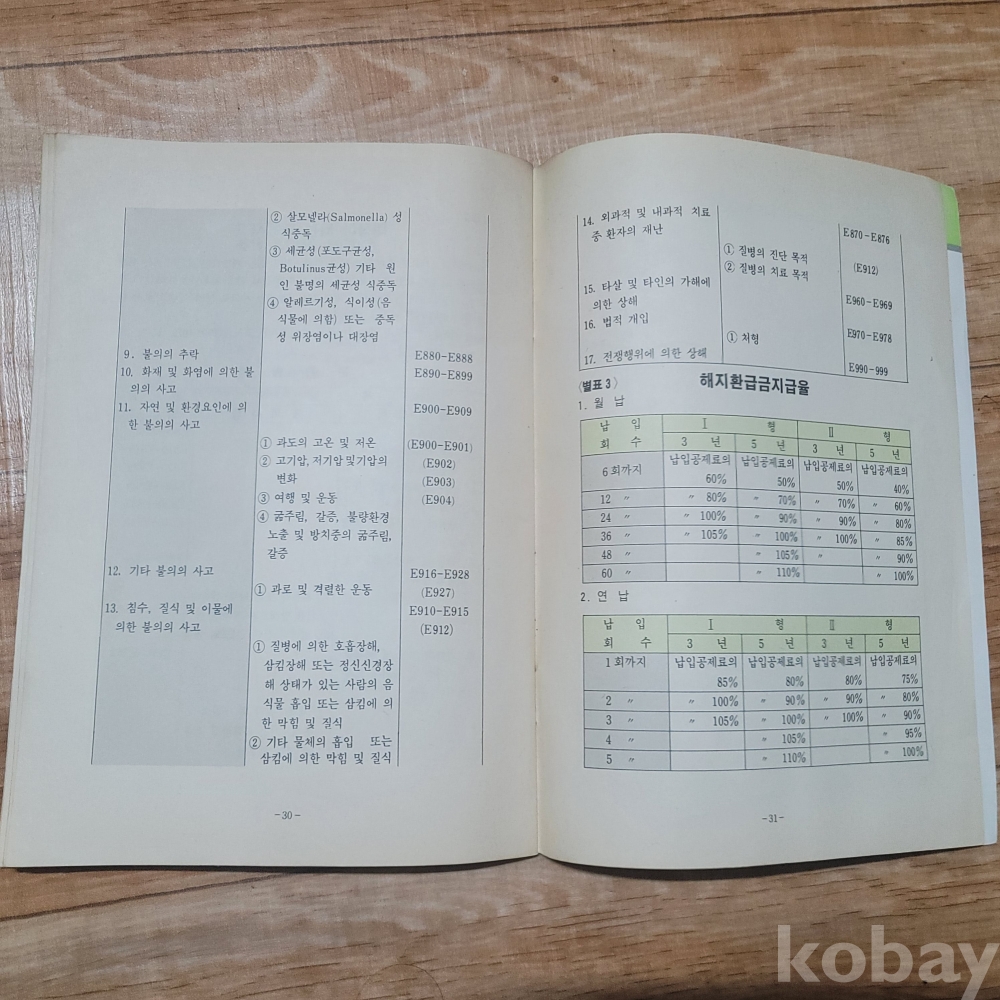 ② 살모넬라(Salmonella) 성
식중독
③ 세균성(포도구균성,
Botulinus균성) 기타 원
인 불명의 세균성 식중독
④ 알레르기성, 식이성(음
식물에 의함) 또는 중독
성 위장염이나 대장염
9. 불의의 추락 E880-E888
10. 화재 및 화염에 의한 불 E890-E899
의의 사고
11. 자연 및 환경요인에 의 E900-E909
한 불의의 사고
① 과도의 고온 및 저온 (E900-E901)
② 고기압, 저기압및기압의 (E902)
변화 (E903)
③ 여행 및 운동 (E904)
④ 굶주림, 갈증, 불량환경
노출 및 방치중의 굶주림,
갈증
12. 기타 불의의 사고 E916-E928
① 과로 및 격렬한 운동 (E927)
13. 침수, 질식 및 이물에 E910-E915
의한 불의의 사고 (E912)
① 질병에 의한 호흡장해,
삼킴장해 또는 정신신경장
해 상태가 있는 사람의 음
식물 흡입 또는 삼킴에 의
한 막힘 및 질식
② 기타 물체의 흡입 또는
삼킴에 의한 막힘 및 질식
-30-
14. 외과적 및 내과적 치료
중 환자의 재난 E870-E876
① 질병의 진단 목적
② 질병의 치료 목적 (E912)
15. 타살 및 타인의 가해에
의한 상해 E960-E969
16. 법적 개입
① 처형 E970-E978
17. 전쟁행위에 의한 상해 E990-999
〈별표 3〉 해지환급금지급율
1. 월 납
납 입 Ⅰ 형 Ⅱ 형
회 수 3 년 5 년 3 년 5 년
6회까지 납입공제료의 납입공제료의 납입공제료의 납입공제료의
60% 50% 50% 40%
12 〃 〃 80% 〃 70% 〃 70% 〃 60%
24 〃 〃 100% 〃 90% 〃 90% 〃 80%
36 〃 〃 105% 〃 100% 〃 100% 〃 85%
48 〃 〃 105% 〃 〃 90%
60 〃 〃 110% 〃 100%
2. 연 납
납 입 Ⅰ 형 Ⅱ 형
회 수 3 년 5 년 3 년 5 년
1회까지 납입공제료의 납입공제료의 납입공제료의 납입공제료의
85% 80% 80% 75%
2 〃 〃 100% 〃 90% 〃 90% 〃 80%
3 〃 〃 105% 〃 100% 〃 100% 〃 90%
4 〃 〃 105% 〃 95%
5 〃 〃 110% 〃 100%
-31-
kobay